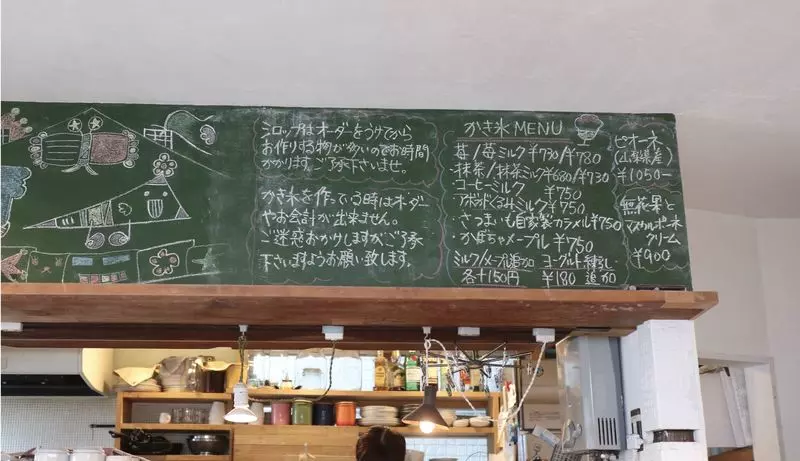 シロップはオーダーをうけてから
お作りする物が多いのでお時間
かかります。ご了承下さいませ。
かき氷を作っている時はオーダー
やお会計が出来ません。
ご迷惑おかけしますがご了承
下さいますようお願い致します。
かき氷 MENU
苺/苺ミルク ¥730/¥780
・抹茶/抹茶ミルク ¥680/¥730
コーヒーミルク ¥750
アボカドくるみミルク ¥750
・さつまいも自家製カラメル ¥750
・かぼちゃメープル ¥750
ミルク/メープル追加
各+150円
ヨーグルト練乳
¥180 追加
ピオーネ
(山梨県産)
¥1050-
無花果と
マスカルポーネ
クリーム
¥900